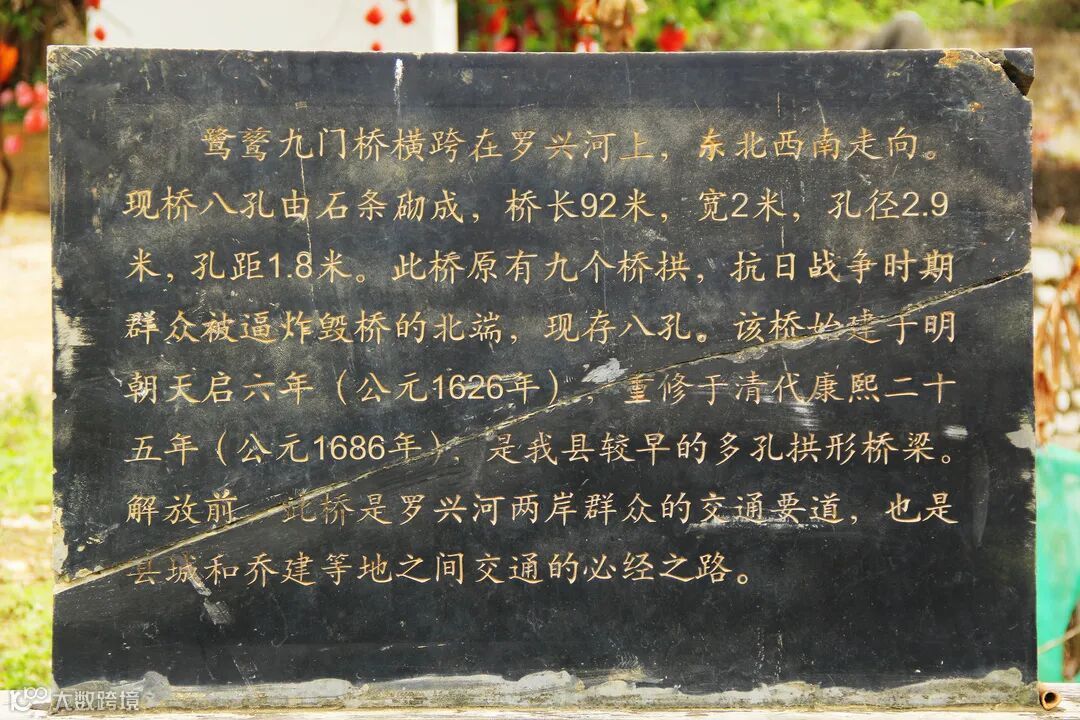 鹭鸶九门桥横跨在罗兴河上，东北西南走向。
现桥八孔由石条砌成，桥长92米，宽2米，孔径2.9
米，孔距1.8米。此桥原有九个桥拱，抗日战争时期
群众被逼炸毁桥的北端，现存八孔。该桥始建于明
朝天启六年（公元1626年），重修于清代康熙二十
五年（公元1686年），是我县较早的多孔拱形桥梁。
解放前，此桥是罗兴河两岸群众的交通要道，也是
县城和乔建等地之间交通的必经之路。
大数跨境